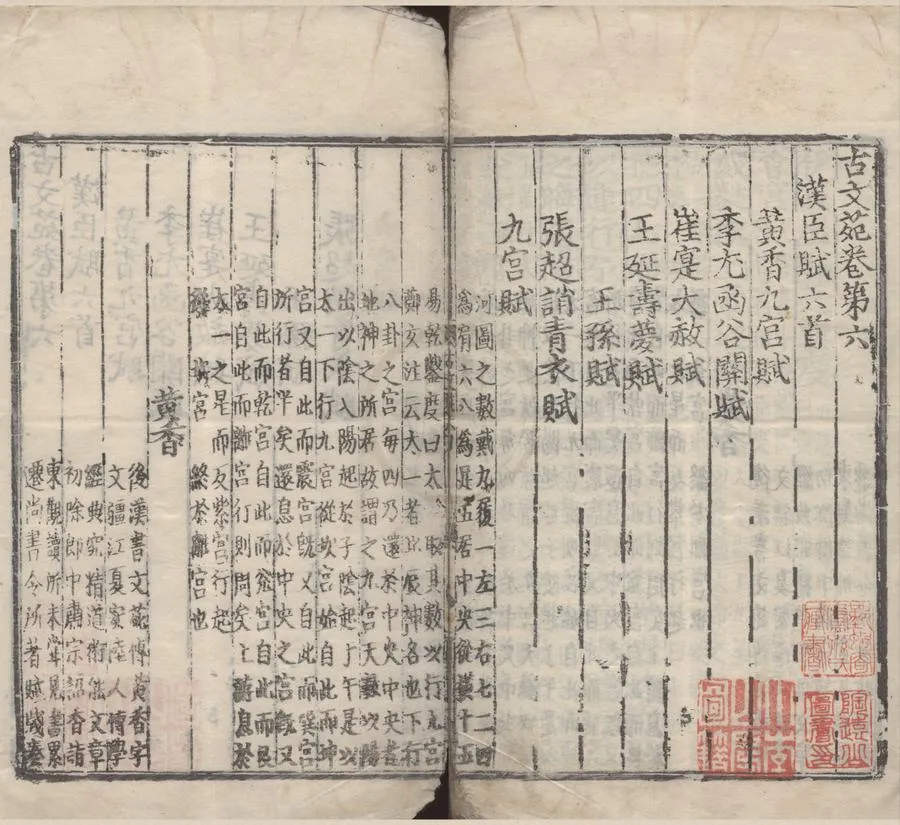 古文苑卷第六
漢臣賦六首
黃香九宮賦
李尤函谷關賦
崔寔大赦賦
王延壽夢賦
王孫賦
張超誚青衣賦
九宮賦
河圖之數戴九履一左三右七二四
為肩六八為足五居中央從橫十五
易乾鑿度曰太一取其數以行九宮
鄭玄注云太一者北辰神名也下行
八卦之宮每四乃還於中央中央者
地神之所居故謂之九宮天數以陽
出以陰入陽起於子陰起于午是以
太一下行九宮從坎宮始自此而坤
宮又自此而震宮既又自此而巽宮
所行者半矣還息於中央之宮既又
自此而乾宮自此而兌宮自此而艮
宮自此而離宮行則周矣上遊息於
太一之星而反紫宮行起
從坎宮終於離宮也
黃香
後漢書文苑傳黃香字
文彊江夏安陸人博學
經典究精道術能文章
初除郎中肅宗詔香詣
東觀讀所未嘗見書累
遷尚書令所著賦牋奏